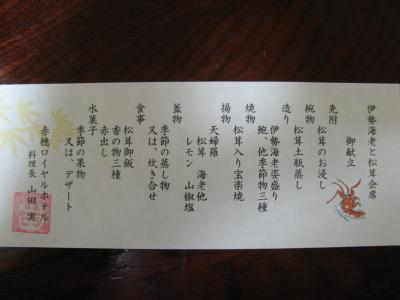 伊勢海老と松茸会席
御献立
先附
松茸のお浸し
椀物
松茸土瓶蒸し
造り
伊勢海老姿盛り
鮑、他季節物三種
焼物
松茸入り宝楽焼
揚物
天婦羅
松茸　海老他
レモン　山椒塩
蓋物
季節の蒸し物
又は、炊き合せ
食事
松茸御飯
香の物三種
赤出し
水菓子
季節の果物
又は、デザート
赤穂ロイヤルホテル
料理長　山田　実